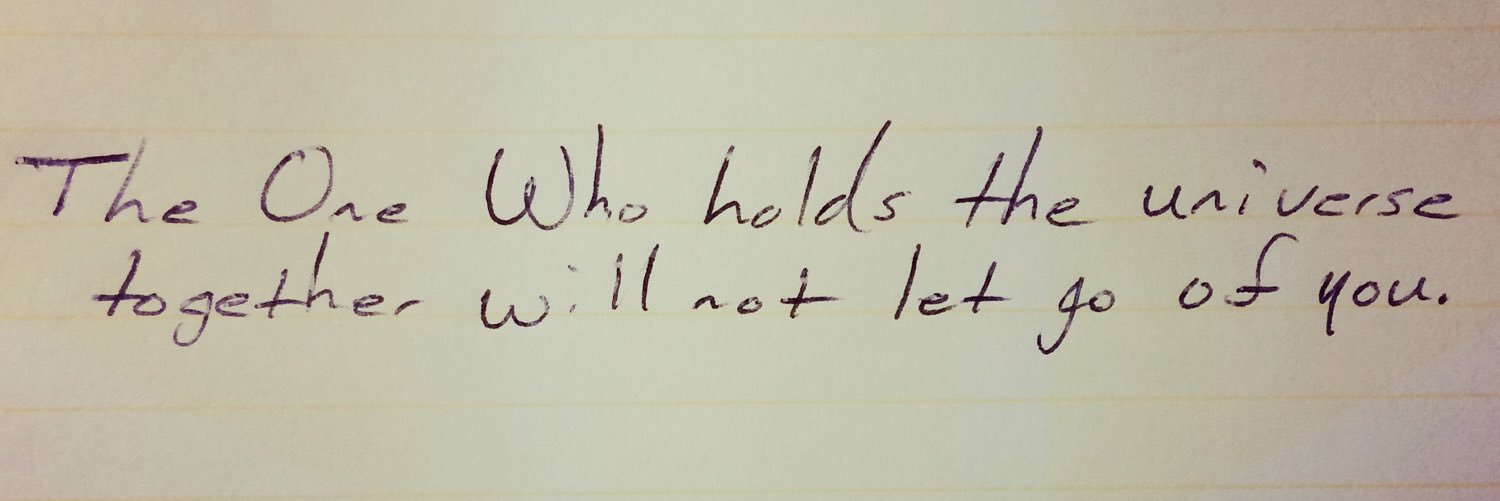 The One Who holds the universe
together will not let go of you.